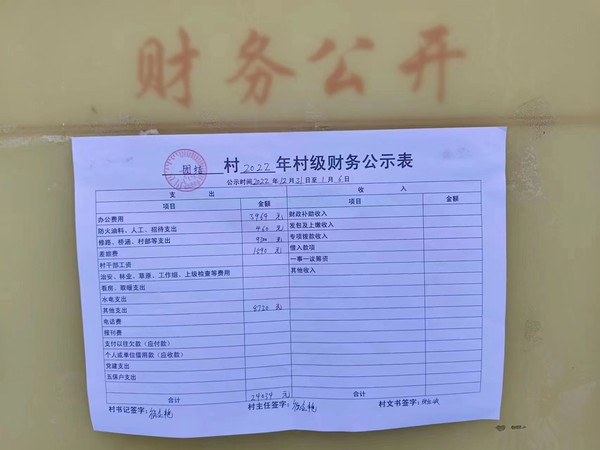 财务公开
团结 村 2022 年村级财务公示表
公示时间2022 年 12 月 31 日至 1 月 6 日
支 出 收 入
项目 金额 项目 金额
办公费用 元 财政补助收入
防火油料、人工、招待支出 460 元 发包及上缴收入
修路、桥涵、村部等支出 元 专项拨款收入
差旅费 元 借入款项
村干部工资 一事一议筹资
治安、林业、草原、工作组、上级检查等费用 其他收入
看房、取暖支出
水电支出
其他支出 8720 元
电话费
报刊费
支付以往欠款（应付款）
个人或单位借用款（应收款）
党建支出
五保户支出
合计 元 合计
村书记签字： 村主任签字： 村文书签字：